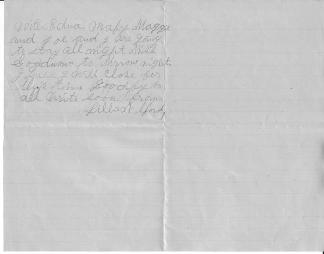 with Edna Mary Magga
and Joe and I are going
to stay all night with
Goodwins to morrow night
I guess I will close for
this time Good by to
all write soon from